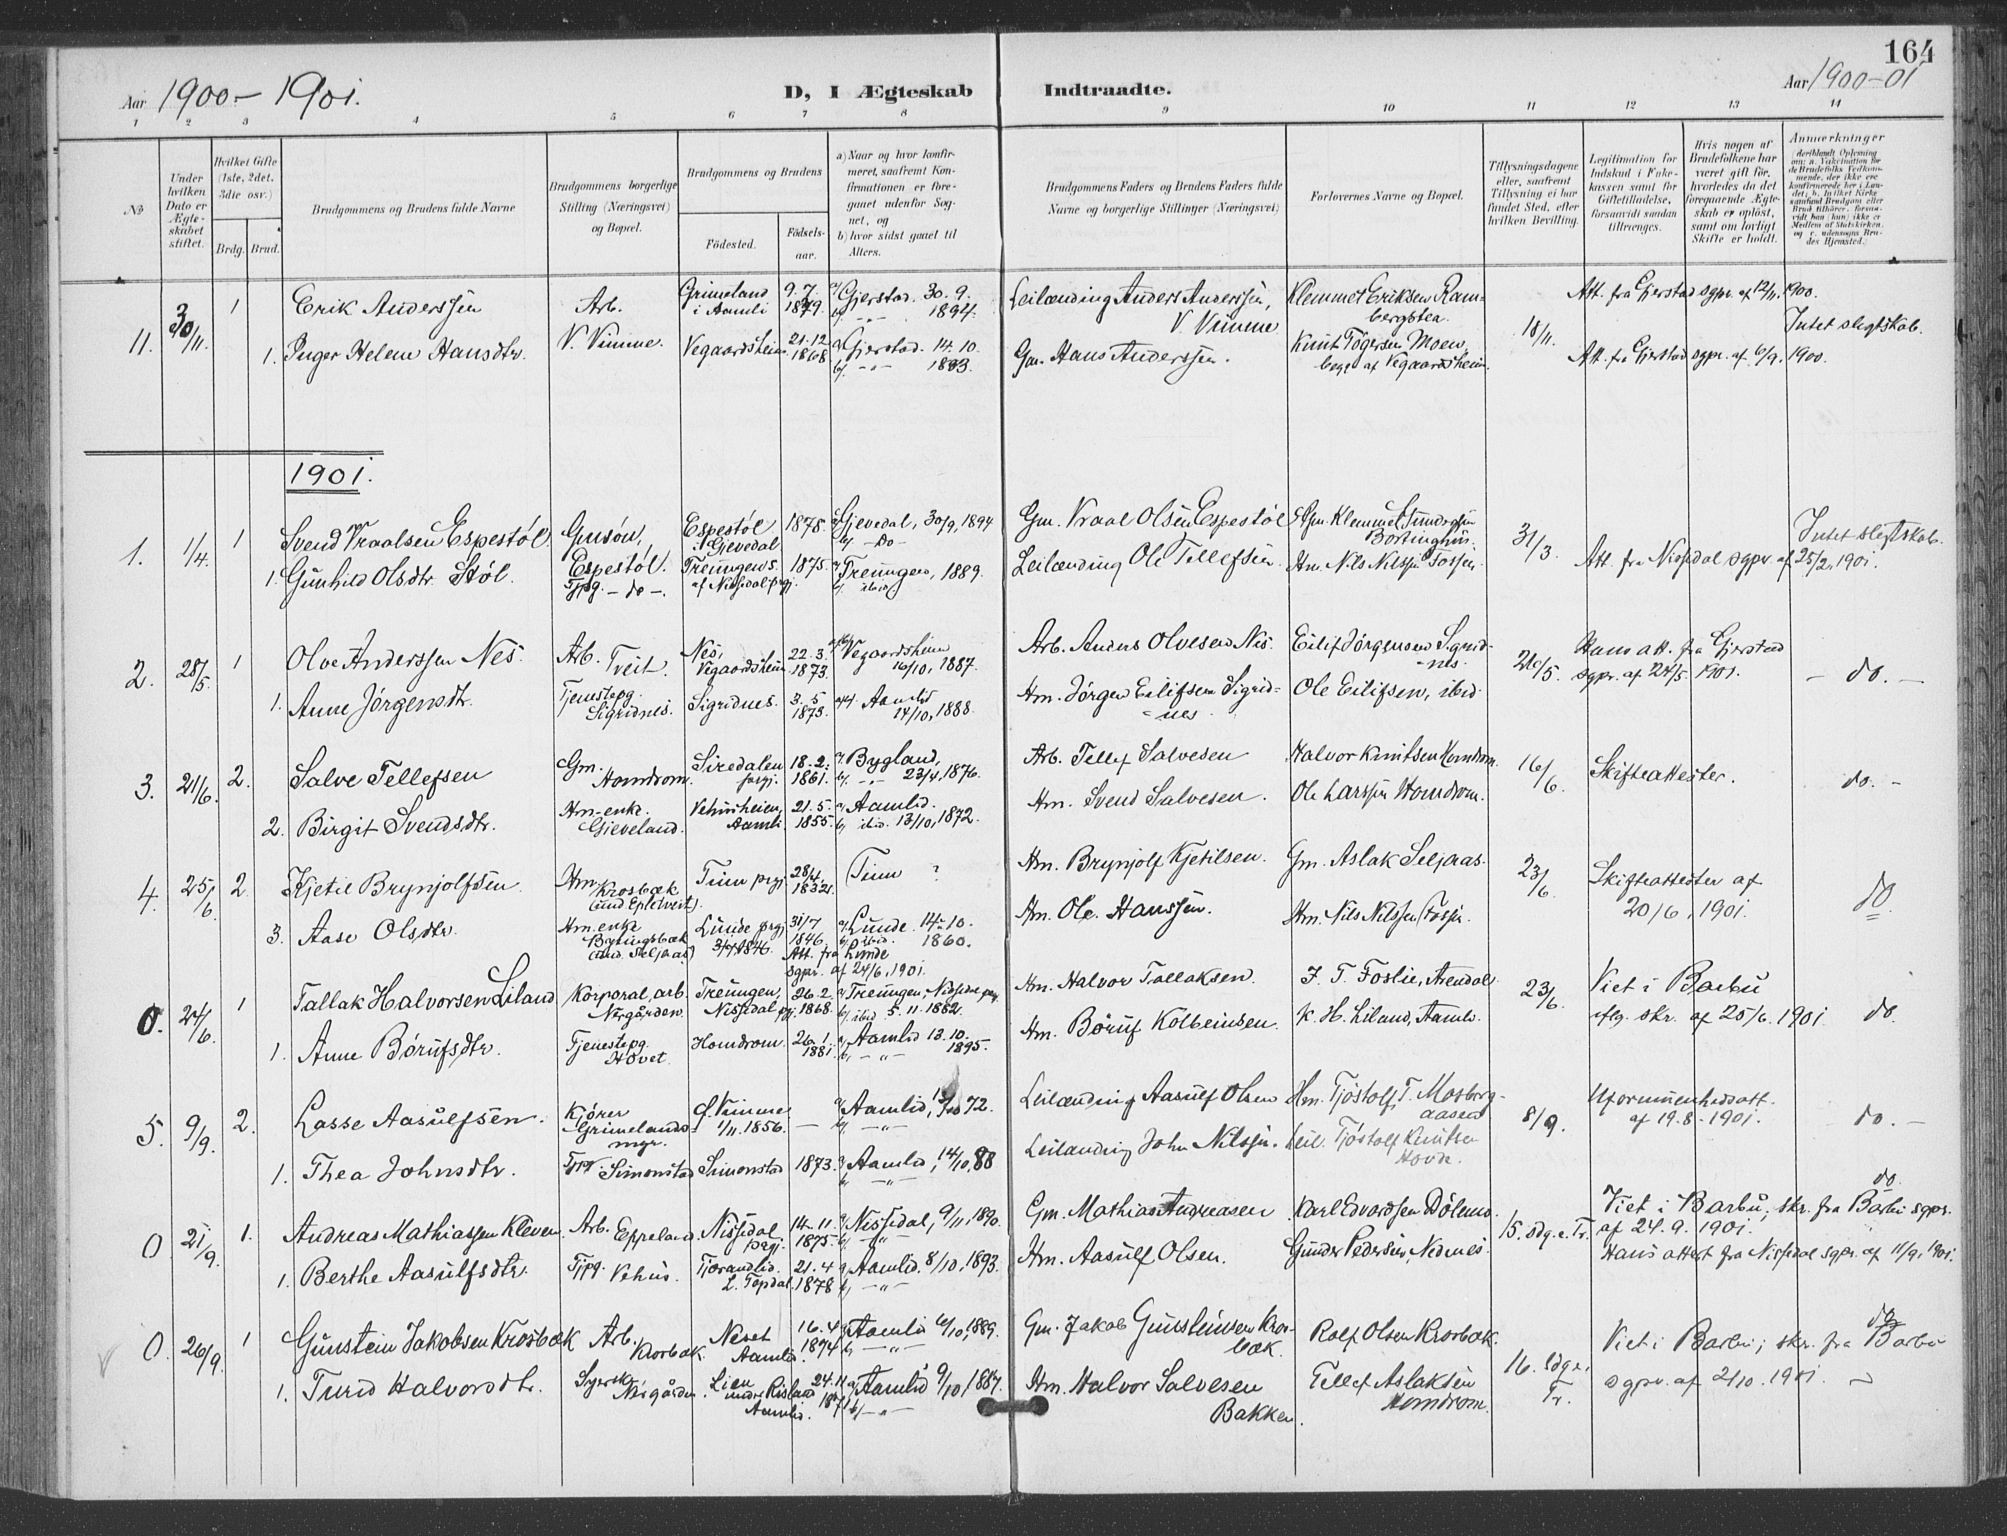 164
Aar 1900 - 1901.
D, I Ægteskab Indtraadte.
Aar 1900-01
1 2 3 4 5 6 7 8 9 10 11 12 13 14
№
Under hvilken Dato er Ægteskabet stiftet.
Hvilket Gifte (1ste, 2det, 3die osv.)
Brdg. Brud.
Brudgommens og Brudens fulde Navne
Brudgommens borgerlige Stilling (Næringsvei) og Bopæl.
Brudgommens og Brudens
Fødested. Fødselsaar.
a) Naar og hvor konfirmeret, saafremt Konfirmationen er foregaaet udenfor Sognet, og
b) hvor sidst gaaet til Alters.
Brudgommens Faders og Brudens Faders fulde Navne og borgerlige Stillinger (Næringsvei)
Forlovernes Navne og Bopæl.
Tillysningsdagene eller, saafremt Tillysning ei har fundet Sted, efter hvilken Bevilling.
Legitimation for Indskud i Enkekassen samt for Giftetilladelse, forsaavidt saadan tiltrænges.
Hvis nogen af Brudefolkene har været gift før, hvorledes da det foregaaende Ægteskab er opløst, samt om lovligt Skifte er holdt.
Anmærkninger
11. 30/11. 1 Erik Anderssen Arb. Grimeland i Aamli 9.7. 1879. a) Gjerstad. 30.9. 1894. Leilænding Anders Anderssen, V. Vimme Klemmet Eriksen Rambergstea 18/11. Att. fra Gjerstad sgpr. af 12/11. 1900.
Intet slegtskab.
1. Inger Helene Hansdtr. V. Vimme. Vegaardsheim 21.12 1868 a) Gjerstad. 14.10. 1883. Gm. Hans Anderssen. Knut Tøgersen Moen, begge af Vegaardsheim. Att. fra Gjerstad sgpr. af 6/9. 1900.
1901.
1. 1/4. 1 Svend Vraalsen Espestøl. Gmsøn, Espestøl. Espestøl Gjevedal 1878. a) Gjevedal, 30/9, 1894 b) -Do- Gm. Vraal Olsen Espestøl Gm. Klemmet 31/3. Intet slegtskab.
1. Gunhild Olsdtr. Støl. Tjpg. -do-. Treungens. af Nissedal prgj. 1875. a) Treungen, 1889. b) ibid Leilænding Ole Tellefsen. Hm. Nils Nilssen Fossen. Att. fra Nissedal sgpr. af 25/2. 1901.
2. 28/5. 1 Olve Anderssen Nes. Arb. Tveit. Nes, Vegaardsheim 22.3. 1873. Vegaardsheim 16/10, 1887. Arb. Anders Olvesen Nes. Eilif Jørgensen Sigridnes. 26/5. Hans att. fra Gjerstad sgpr. af 24/5 1901. - do. -
1. Anne Jørgensdtr. Tjenestepg. Sigridnes. Sigridnes. 3.5. 1873. Aamlid 14/10, 1888. Hm. Jørgen Eilifsen Sigridnes. Ole Eilifsen, ibid.
3. 21/6. 2. Salve Tellefsen Gm. Homdrom. Siredalen prgj. 18.2. 1861. a) Bygland, b) -"- 23/4, 1876. Arb. Tellef Salvesen Halvor Knutsen Homdrom. 16/6. Skifteattester. do. -
2. Birgit Svendsdtr. Hm.enke. Gjeveland. Vehusheien, Aamli 21.5. 1855. a) Aamlid. b) ibid. 13/10, 1872. Hm. Svend Salvesen. Ole Larssen Homdrom.
4. 25/6. 2. Kjetil Brynjolfsen. Hm. Krosbæk (und. Epletveit). Tinn prgj. 28/4. Tinn ? Hm. Brynjolf Kjetilsen. Gm. Aslak Seljaas. 23/6. Skifteattester af 20/6, 1901. do
3. Aase Olsdtr. Hm.enke (und. Seljaas) Lunde prgj. 31/7 1846. a) Lunde. 14.10. b) ibid. 1860. Hm. Ole Hanssen. Hm. Nils Nilssen Fossen.
Att. fra Lunde sgpr. af 24/6, 1901.
0. 24/6. 1 Tallak Halvorsen Liland Korporal, arb. Nergården. Treungen, Nissedal prgj. 26.2. 1868. a) Treungen, Nissedal prgj. b) ibid 5.11.1882. Hm. Halvor Tallaksen. J. T. Foslie, Arendal 23/6. Viet i Barbu eflg. skr. af 25/6. 1901 do.
1. Anne Børufsdtr. Tjenestepg. Hovet. Homdrom. 26.1. 1881. a) Aamlid 13.10. b) -"- 1895. Hm. Børuf Kolbeinsen. K. H. Liland, Aamli.
5. 9/9. 2. Lasse Aasulfsen. Kjører Grimelandsmyr. 1/11. 1856. - a) Aamlid, 72. b) -"- Leilænding Aasulf Olsen Hm. Tjøstolf T. Mosbergaasen 8/9. Uformuenhedsatt. af 19.8.1901. do. -
1. Thea Johnsdtr. Simonstad Simonstad 1873. a) Aamlid, 14/10, 88 b) -"- Leilænding John Nilssen. Leil. Tjøstolf Knutsen Hovde.
0 21/9. 1. Andreas Mathiassen Kleven Arb. Eppeland. Nissedal prgj. 14.11. 1875. a) Nissedal, 9/11, 1890. b) -"- Gm. Mathias Andreasen Karl Edvardsen Dølemo. 15. sdg. e. Tr. Viet i Barbu, skr. fra Barbu sgpr. af 24.9.1901. do.
1. Berthe Aasulfsdtr. Tjpg. Vehus. Tjorandlid. L. Topdal. 21.4 1878 a) Aamlid. 8/10, 1893. b) -"- Hm. Aasulf Olsen. Gunder Pedersen, Nedenes. Hans attest fra Nissedal sgpr. af 11/9. 1901.
0. 26/9. 1 Gunstein Jakobsen Krosbæk Arb. Krosbæk. Neset Aamlid. 16.4 1874 a) Aamli 6/10, 1889. b) -"- Gm. Jakob Gunsteinsen Krosbæk. Rolf Olsen Krosbæk. 16. sdg e. Tr. Viet i Barbu; skr. fra Barbu sgpr. af 2/10. 1901. do
1. Turid Halvorsdtr. Syersk Nergården. Lien under Risland Aamlid. 24.11 1871 a) Aamlid 9/10, 1887. b) -"- Hm. Halvor Salvesen Bakken. Tellef Aslaksen Homdrom.